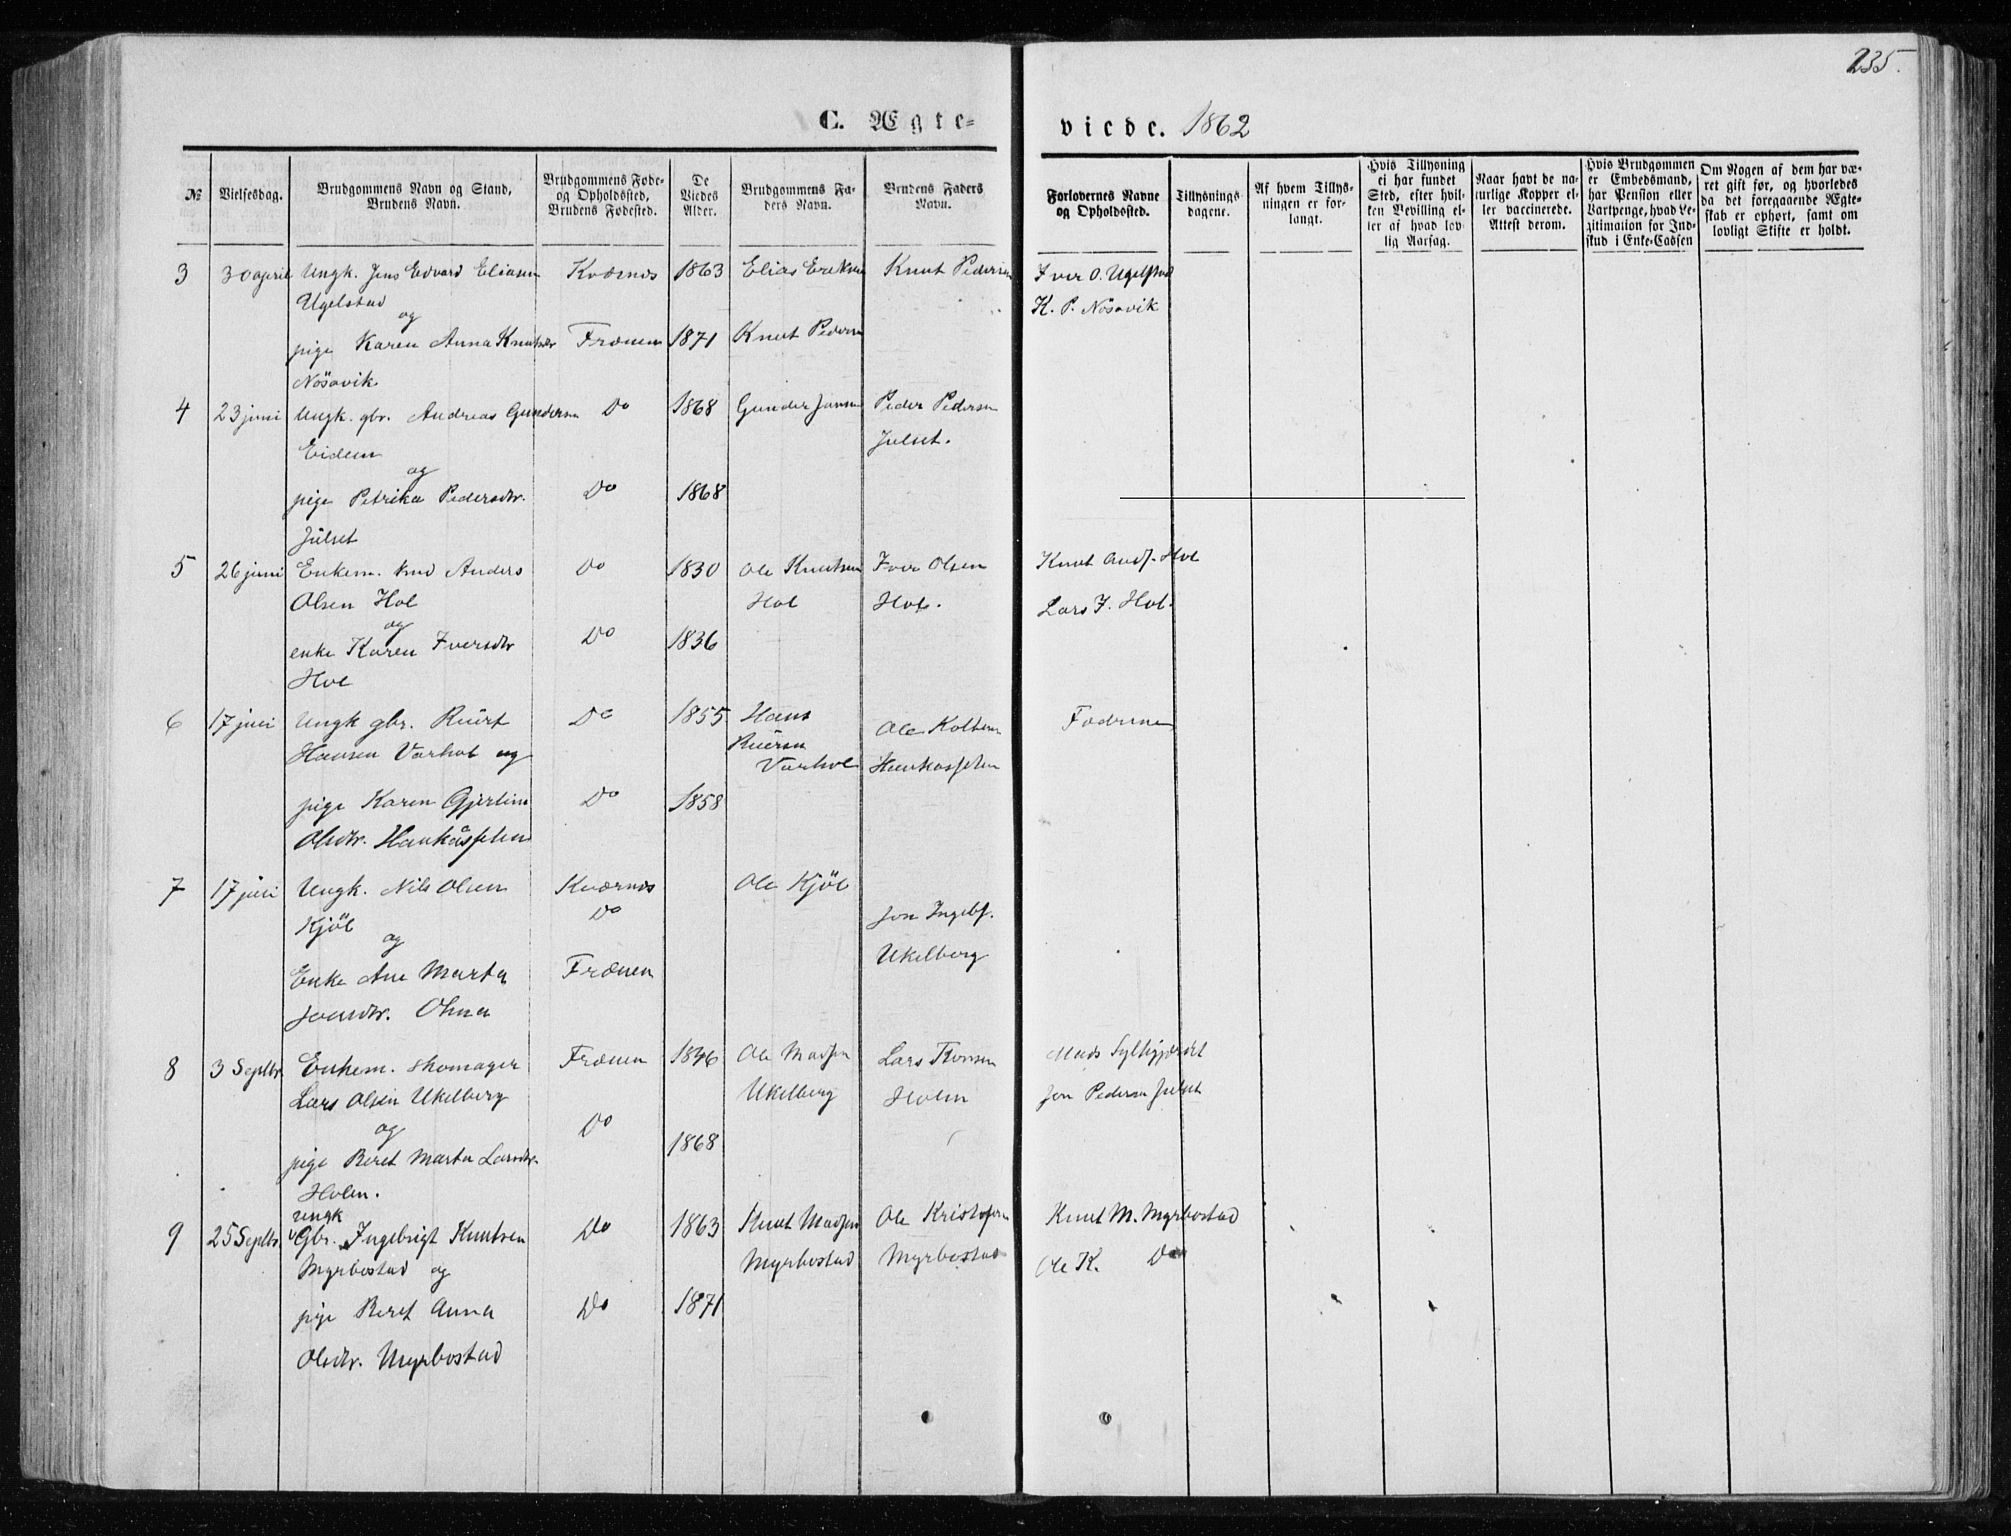 235.
C. Ægte-
viede. 1862
№
Vielsesdag.
Brudgommens Navn og Stand,
Brudens Navn.
Brudgommens Føde-
og Opholdssted,
Brudens Fødested.
De
Viedes
Alder.
Brudgommens Fa-
ders Navn.
Brudens Faders
Navn.
Forlovernes Navne
og Opholdssted.
Tillysnings-
dagene.
Af hvem Tillys-
ningen er for-
langt.
Hvis Tillysning
ei har fundet
Sted, efter hvil-
ken Bevilling el-
ler af hvad lov-
lig Aarsag.
Naar havt de na-
turlige Kopper el-
ler vaccinerede.
Attest derom.
Hvis Brudgommen
er Embedsmand,
har Pension eller
Vartpenge, hvad Le-
gitimation for Ind-
skud i Enke-Cassen
Om Nogen af dem har væ-
ret gift før, og hvorledes
da det foregaaende Ægte-
skab er ophørt, samt om
lovligt Skifte er holdt.
3 30 april Ungk. Jens Edvard Eliasen Kværnes 1863 Elias Eriksen Knut Pedersen Iver O. Ugelstad
Ugelstad K. P. Nösavik
og
pige Karen Anna Knutsdtr Frænen 1871 Knut Pedersen
Nösavik
4 23 juni Ungk. gbr. Andreas Gundersen Do 1868 Gunder Jansen Peder Pedersen
Eidem Julset.
og
pige Petrika Pedersdtr. Do 1868
Julset
5 26 juni Enkem. Anders Do 1830 Ole Knutsen Iver Olsen Knut And. Hol
Olsen Hol Hol Hol. Lars I. Hol.
og
enke Karen Iversdtr Do 1836
Hol
6 17 juli Ungk gbr. Riert Do 1855 Hans Ole Kolbens Fædrene
Hansen Varhol og Riersen Haukåsselen
Varhol
pige Karen Gjertine Do 1858
Olsdtr. Haukåsselen
7 17 juli Ungk. Nils Olsen Kværnes Ole Kjöl Jon Ingebr.
Kjöl Do Ukelberg
og
Enke Ane Marta Frænen
Joensdtr.
8 3 Septbr Enkem. skomager Frænen 1846 Ole Madsen Lars Mads Sylthgjerdet
Lars Olsen Ukelberg Ukelberg Holen Jon Pedersen Julset
og Do
pige Beret Marta Larsdtr 1868
Holen.
ungk
9 25 Septbr. Gbr. Ingebrigt Knutsen Do 1863 Knut Madsen Ole Kristofersen Knut M. Myrbostad
Myrbostad og Myrbostad Myrbostad Ole K. Do
pige Beret Anna Do 1871
Olsdtr. Myrbostad